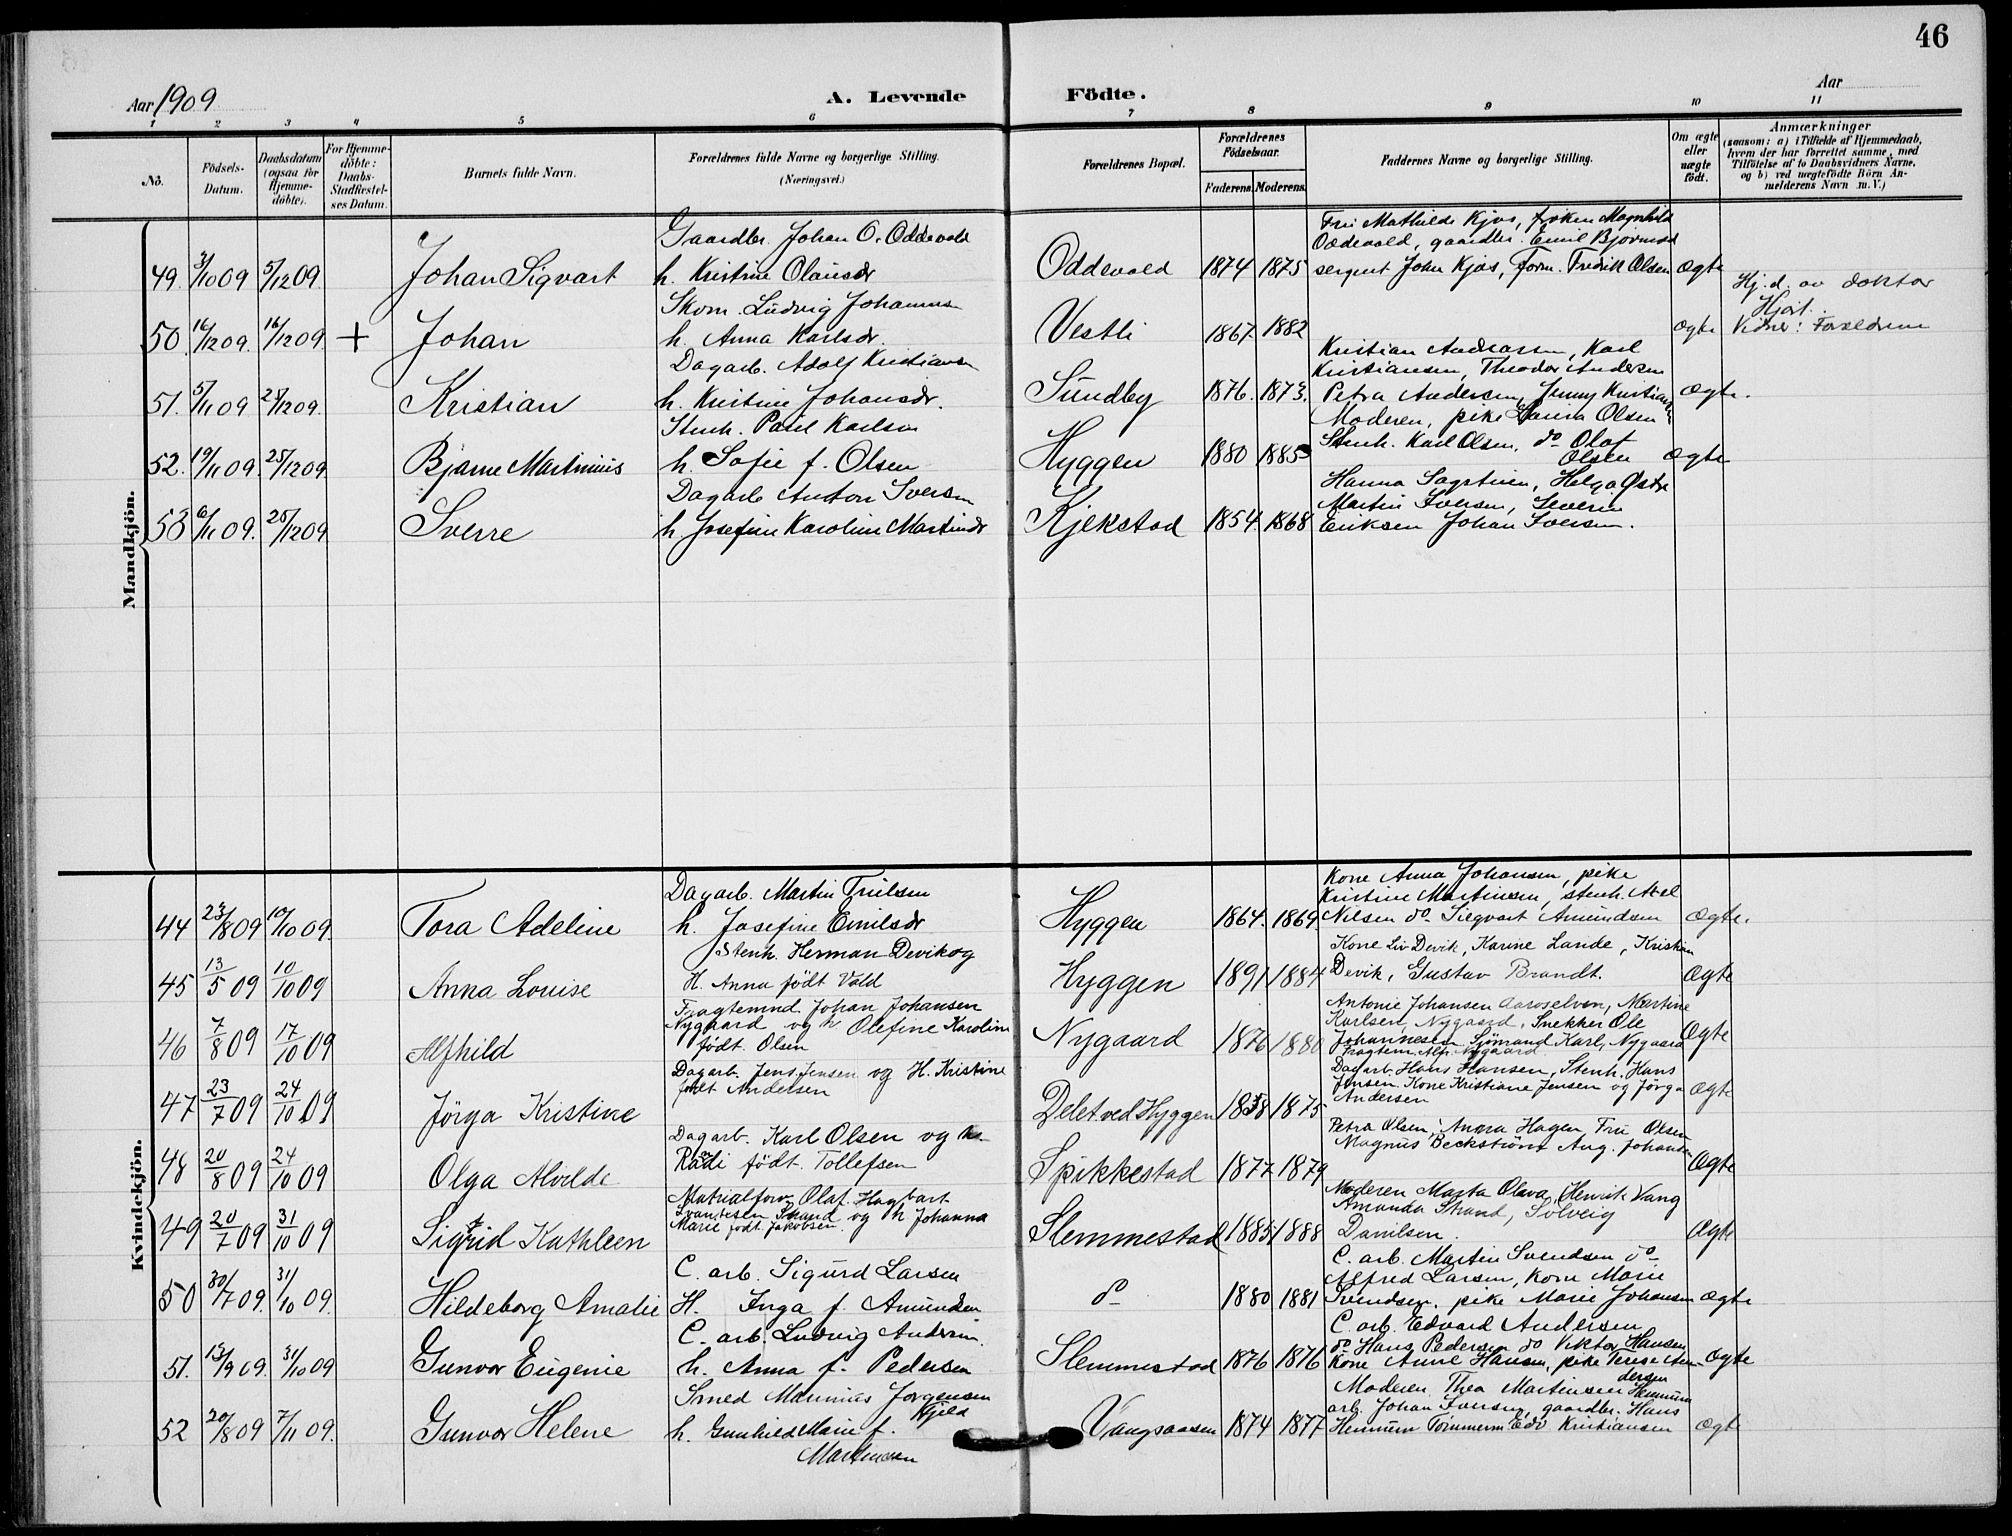 46
Aar 1909
A. Levende
Födte.
Aar
1 2 3 4 5 6 7 8 9 10 11
No.
Födsels-Datum.
Daabsdatum (ogsaa for Hjemme-döbte).
For Hjemme-döbte: Daabs-Stadfæstel-ses Datum.
Barnets fulde Navn.
Forældrenes fulde Navne og borgerlige Stilling.
(Næringsvei.)
Forældrenes Bopæl.
Forældrenes Födselsaar.
Faderens. Moderens.
Faddernes Navne og borgerlige Stilling.
Om ægte eller uægte födt.
Anmærkninger
(saasom: a) i Tilfælde af Hjemmedaab, hvem der har forrettet samme, med Tilföielse af to Daabsvidners Navne, og b) ved uægtefödte Börn An-melderens Navn m. V.)
Mandkjön.
Gaardbr. Johan O. Oddevald
Fru Mathilde Kjos, frøken Magnhild
Oddevald, gaardbr. Emil Bjørnsad
49. 3/10 09 5/12 09. Johan Sigvart h. Kristine Olausdr Oddevald 1874 1875 sergent John Kjos, Form. Fredrik Olsen ægte
Hj. d. av doktor
Hjort.
Skom. Ludvig Johannes
50. 16/12 09. 16/12 09. + Johan h. Anna Karlsdr. Vestli 1867 1882 ægte Vidner: Forældrene
Dagarb. Adolf Kristiansen
Kristian Andreassen, Karl
Kristiansen, Theodor Andersen
51. 5/11 09 25/12 09. Kristian h. Kristine Johansdr. Sundby 1876. 1873. Petra Andersen, Jenny Kristiansen ægte.
Stenh. Paul Karlsen
Moderen, pike Laura Olsen
Stenh. Karl Olsen, do Olaf
Olsen
52. 19/11 09. 25/12 09. Bjarne Martinius h. Sofie f. Olsen Hyggen 1880 1885 ægte
Dagarb Anton Iversen
Hanna Sagstuen, Helga Østb
Martin Iversen, Severin
53 6/11 09. 26/12 09 Sverre h. Josefine Karoline Martinsdr Kjekstad 1854. 1868 Eriksen Johan Iversen.
Kvindekjön.
Dagarb. Martin Trulsen
Kone Anna Johansen, pike
Kristine Martinsen, stenh. Axel
44 23/8 09 10/10 09. Tora Adeline h. Josefine Emilsdr Hyggen 1864. 1869 Nilsen do Siegvart Amundsen ægte.
Stenh. Herman Devik og
Kone Liv Devik, Karine Lande, Kristian
45 13/5 09 10/10 09 Anna Louise H. Anna født Vold Hyggen 1891 1884 Devik, Gustav Brandt. ægte
Fragtemnd Johan Johansen
Nygaard og h Olefine Karoline
født. Olsen
Antonie Johansen Aaroselven, Martine
Karlsen, Nygaard, Snekker Ole
46 7/8 09 17/10 09 Alfhild Nygaard 1876 1880 Johannesen Sjömand Karl, Nygaard ægte
Fragtem. Alf. Nygaard
Dagarb. Jens Jensen og H. Kristine
født Andersen
Dagarb. Hans Hansen, Stenh. Hans
Jensen. Kone Kristiane Jensen og Jörga
Andersen
47 23/7 09 24/10 09 Jörga Kristine Delet ved Hyggen 1838 1875 ægte
Dagarb. Karl Olsen og h
Radi født. Tollefsen
Petra Olsen, Anna Hagen, Fru Olsen
Magnus Beckström Aug. Johansen
48 20/8 09 24/10 09 Olga Alvilde Spikkestad 1877 1879 ægte
Matrialforv. Olaf Hagbart
Svansesen Strand og h Johanna
Marie født. Jakobsen
Moderen Marta Olava, Henrik Vang
Amanda Strand, Solveig
49 20/7 09 31/10 09 Sigrid Kathleen Slemmestad 1885 1888 Danilsen. ægte
C. arb. Sigurd Larsen
C. arb. Martin Svendsen do
Alfred Larsen, Kone Marie
50 30/7 09. 31/10 09. Hildeborg Amalie H. Inga f. Amundsen do 1880 1881 Svendsen, pike Marie Johansen ægte
C. arb. Ludvig Andersen
C. arb. Edvard Andersen
do Hans Pedersen do Viktor Hansen
51. 13/9 09 31/10 09 Gunvor Eugenie h. Anna f. Pedersen Slemmestad 1876 1876 Kone Anne Hansen, pike Terese An- ægte
dersen
Smed Marinius Jorgensen
Kjeld
Moderen Thea Martinsen Hennum
arb. Johan Iversen, gaardbr. Hans
52 20/8 09 7/11 09. Gunvor Helene h. Gunhild Marie f. Vangsaasen 1874 1877 Hennum Tømmerm Edv Kristiansen ægte
Martinsen